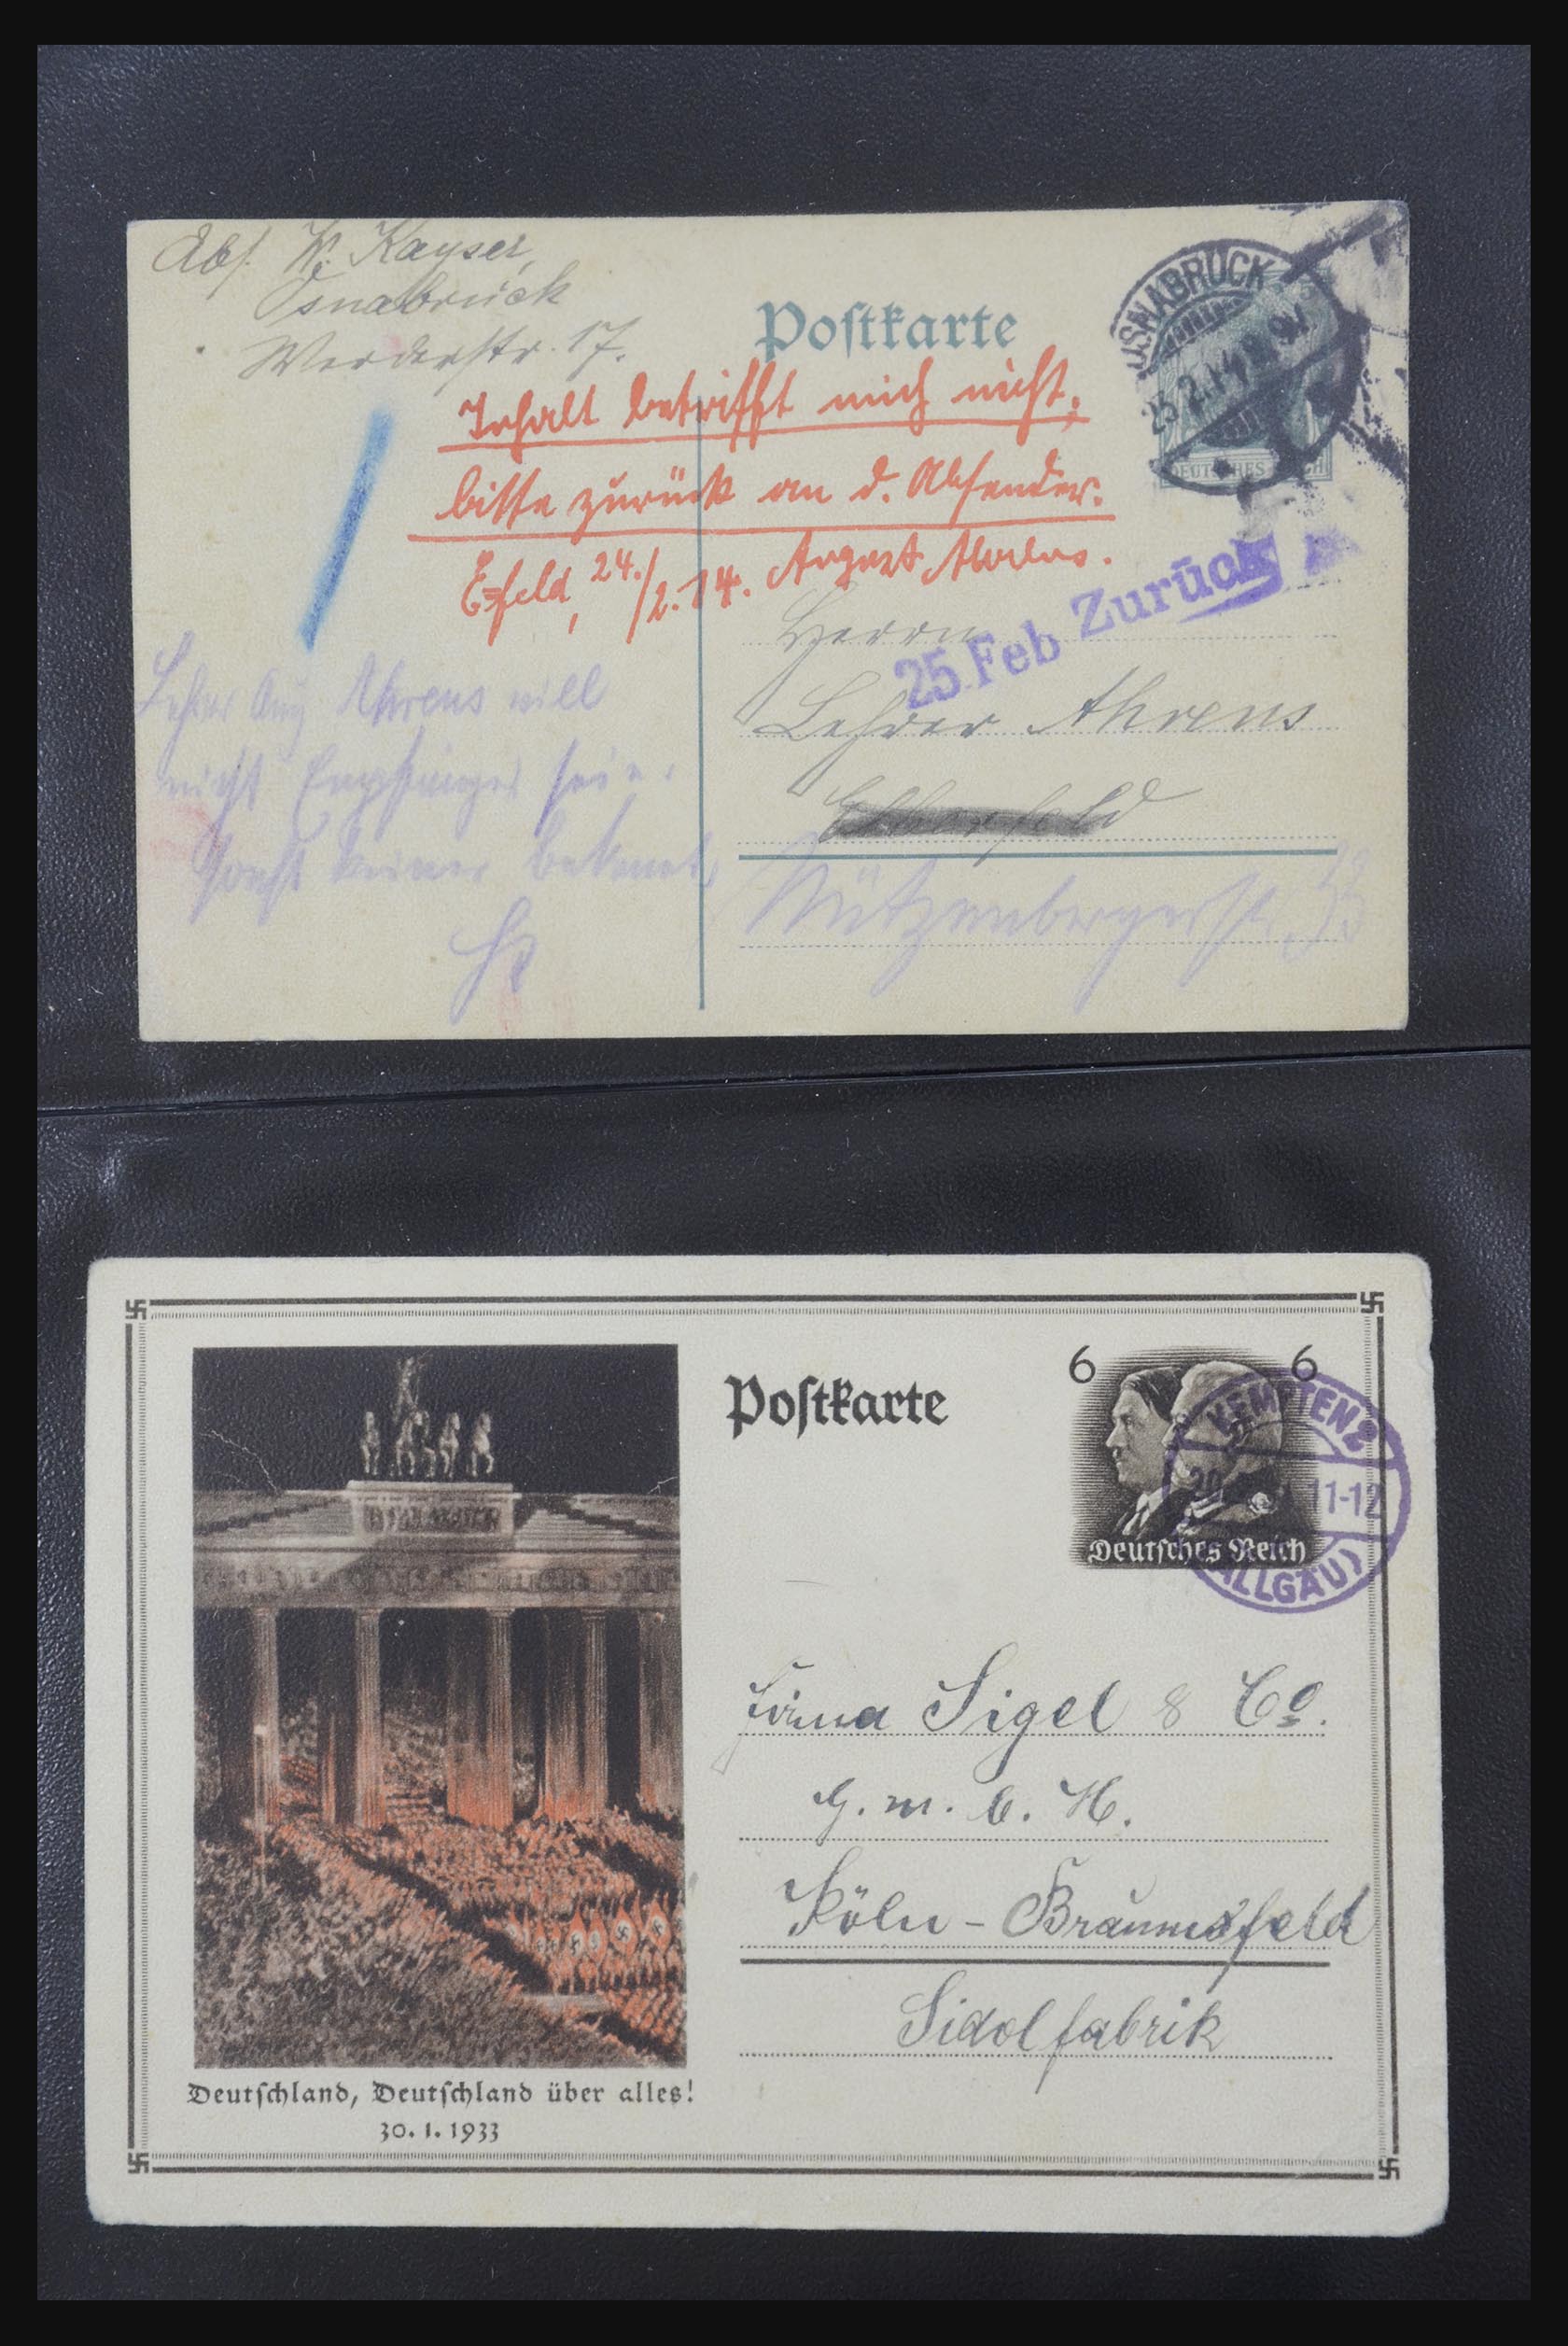 Abs. W. Kayser,
Osnabrück
Werderstr. 17.
Postkarte
OSNABRÜCK
23 2.14. 8-9V
DEUTSCHES REICH
Inhalt betrifft mich nicht,
bitte zurück an d. Absender.
E=feld, 24./2.14. August Ahrens.
Zurück
25 Feb
Herrn
Lehrer Ahrens
Elberfeld
Nützenbergerstr. 33
Lehrer Aug Ahrens will
nicht Empfänger sein.
sonst keiner bekannt,
Postkarte
6 6
Deutsches Reich
KEMPTEN 2
11-12
(ALLGÄU)
Firma Sigel & Co.
G. m. b. H.
Köln - Braunsfeld
Sidolfabrik
Deutschland, Deutschland über alles!
30. 1. 1933